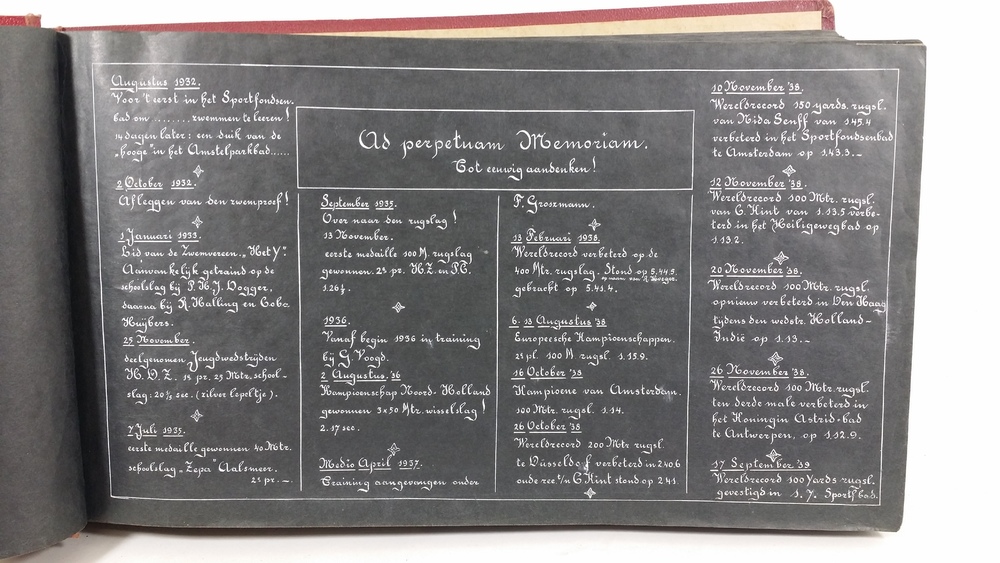 Augustus 1932.
Voor 't eerst in het Sportfondsen.
bad om ........ zwemmen te leeren!
14 dagen later: een duik van de
„hooge" in het Amstelparkbad......
2 October 1932.
Afleggen van den zwemproef!
1 Januari 1933.
Lid van de Zwemvereen. „Het Y".
Aanvankelijk getraind op de
schoolslag bij P. H. J. Dogger,
daarna bij R. Halling en Coba
Huijbers.
25 November.
deelgenomen Jeugdwedstrijden
H.D.Z. 1e pr. 25 Mtr. school-
slag: 20⅖ sec. (zilver lepeltje).
7 Juli 1935.
eerste medaille gewonnen 40 Mtr.
schoolslag „Zepa" Aalsmeer.
2e pr. —.
Ad perpetuam Memoriam.
Tot eeuwig aandenken!
September 1935.
Over naar den rugslag!
13 November.
eerste medaille 100 M. rugslag
gewonnen. 2e pr. HZ. en PC.
1.26 f.
1936.
Vanaf begin 1936 in training
bij G. Voogd.
2 Augustus. '36
Kampioenschap Noord-Holland
gewonnen 3x50 Mtr. wisselslag!
2.17 sec.
Medio April 1937.
Training aangevangen onder
F. Groszmann.
13 Februari 1938.
Wereldrecord verbeterd op de
400 Mtr. rugslag. Stond op 5.44.5.
op naam van
gebracht op 5.41.4.
6-13 Augustus '38
Europeesche Kampioenschappen.
2e pl. 100 M. rugsl. 1.15.9.
16 October '38
Kampioene van Amsterdam.
100 Mtr. rugsl. 1.14.
26 October '38
Wereldrecord 200 Mtr. rugsl.
te Düsseldorf verbeterd in 2.40.6
oude rec. t/n C Kint stond op 2.41.
10 November '38.
Wereldrecord 150 yards. rugsl.
van Nida Senff van 1.45.4
verbeterd in het Sportfondsenbad
te Amsterdam op 1.43.3.—
12 November '38.
Wereldrecord 100 Mtr. rugsl.
van C. Kint van 1.13.5 verbe-
terd in het Heiligewegbad op
1.13.2.
20 November '38.
Wereldrecord 100 Mtr. rugsl.
opnieuw verbeterd in Den Haag
tijdens den wedstr. Holland-
Indië op 1.13.—
26 November '38.
Wereldrecord 100 Mtr. rugsl.
ten derde male verbeterd in
het Koningin Astrid-bad
te Antwerpen, op 1.12.9.
17 September '39
Wereldrecord 100 Yards rugsl.
gevestigd in 1.7. Sportf. bad.